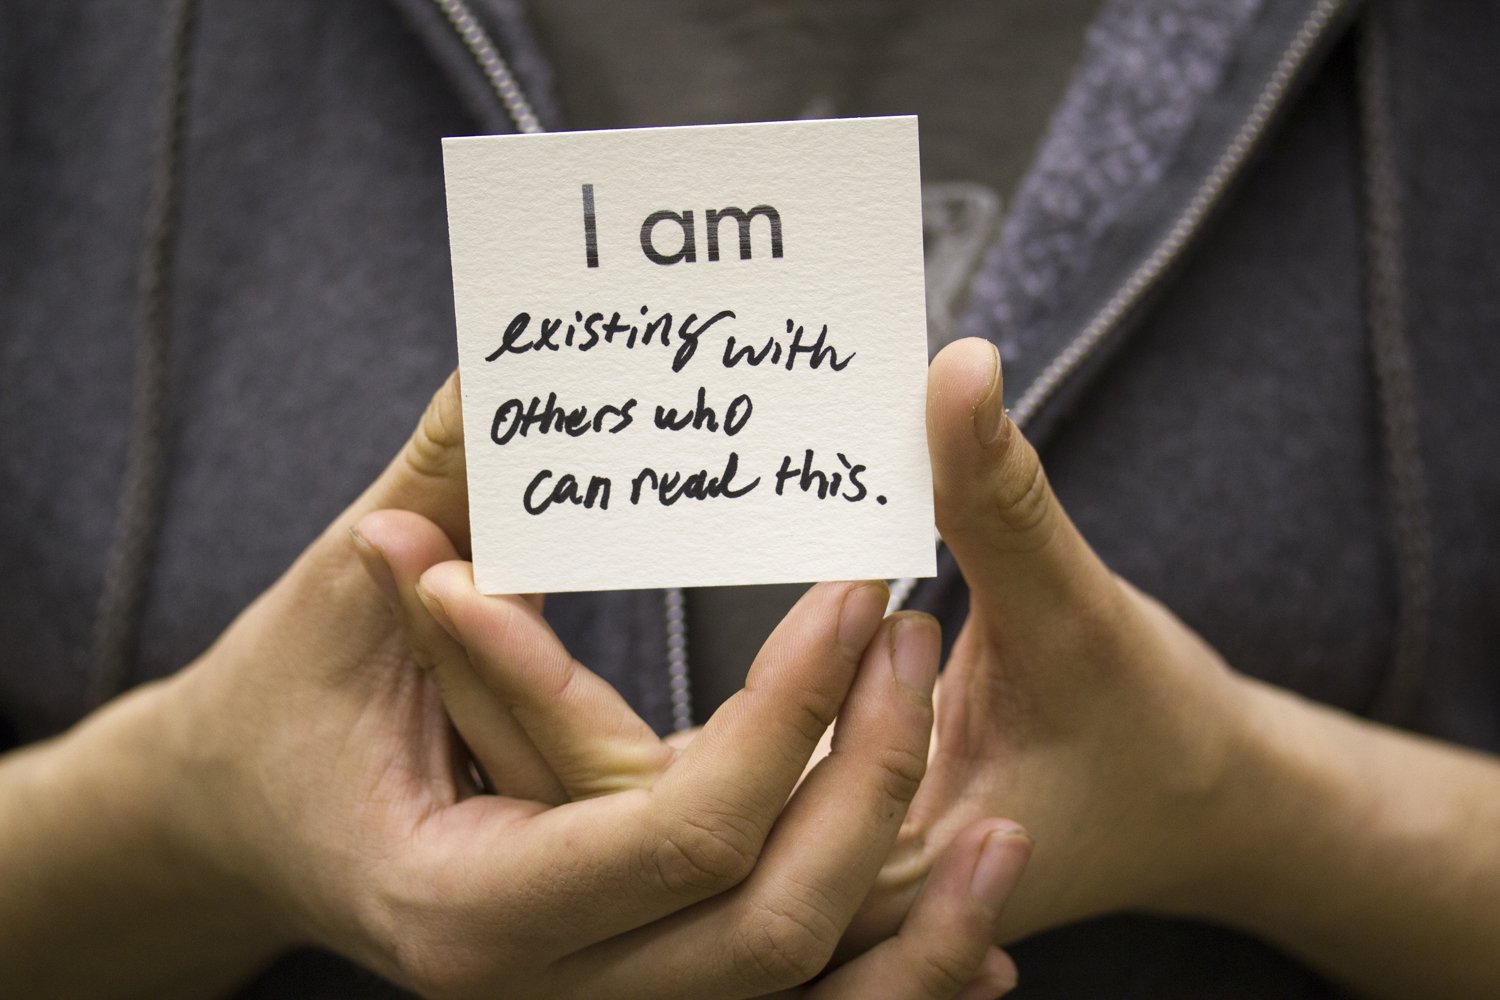 I am
existing with
others who
can read this.